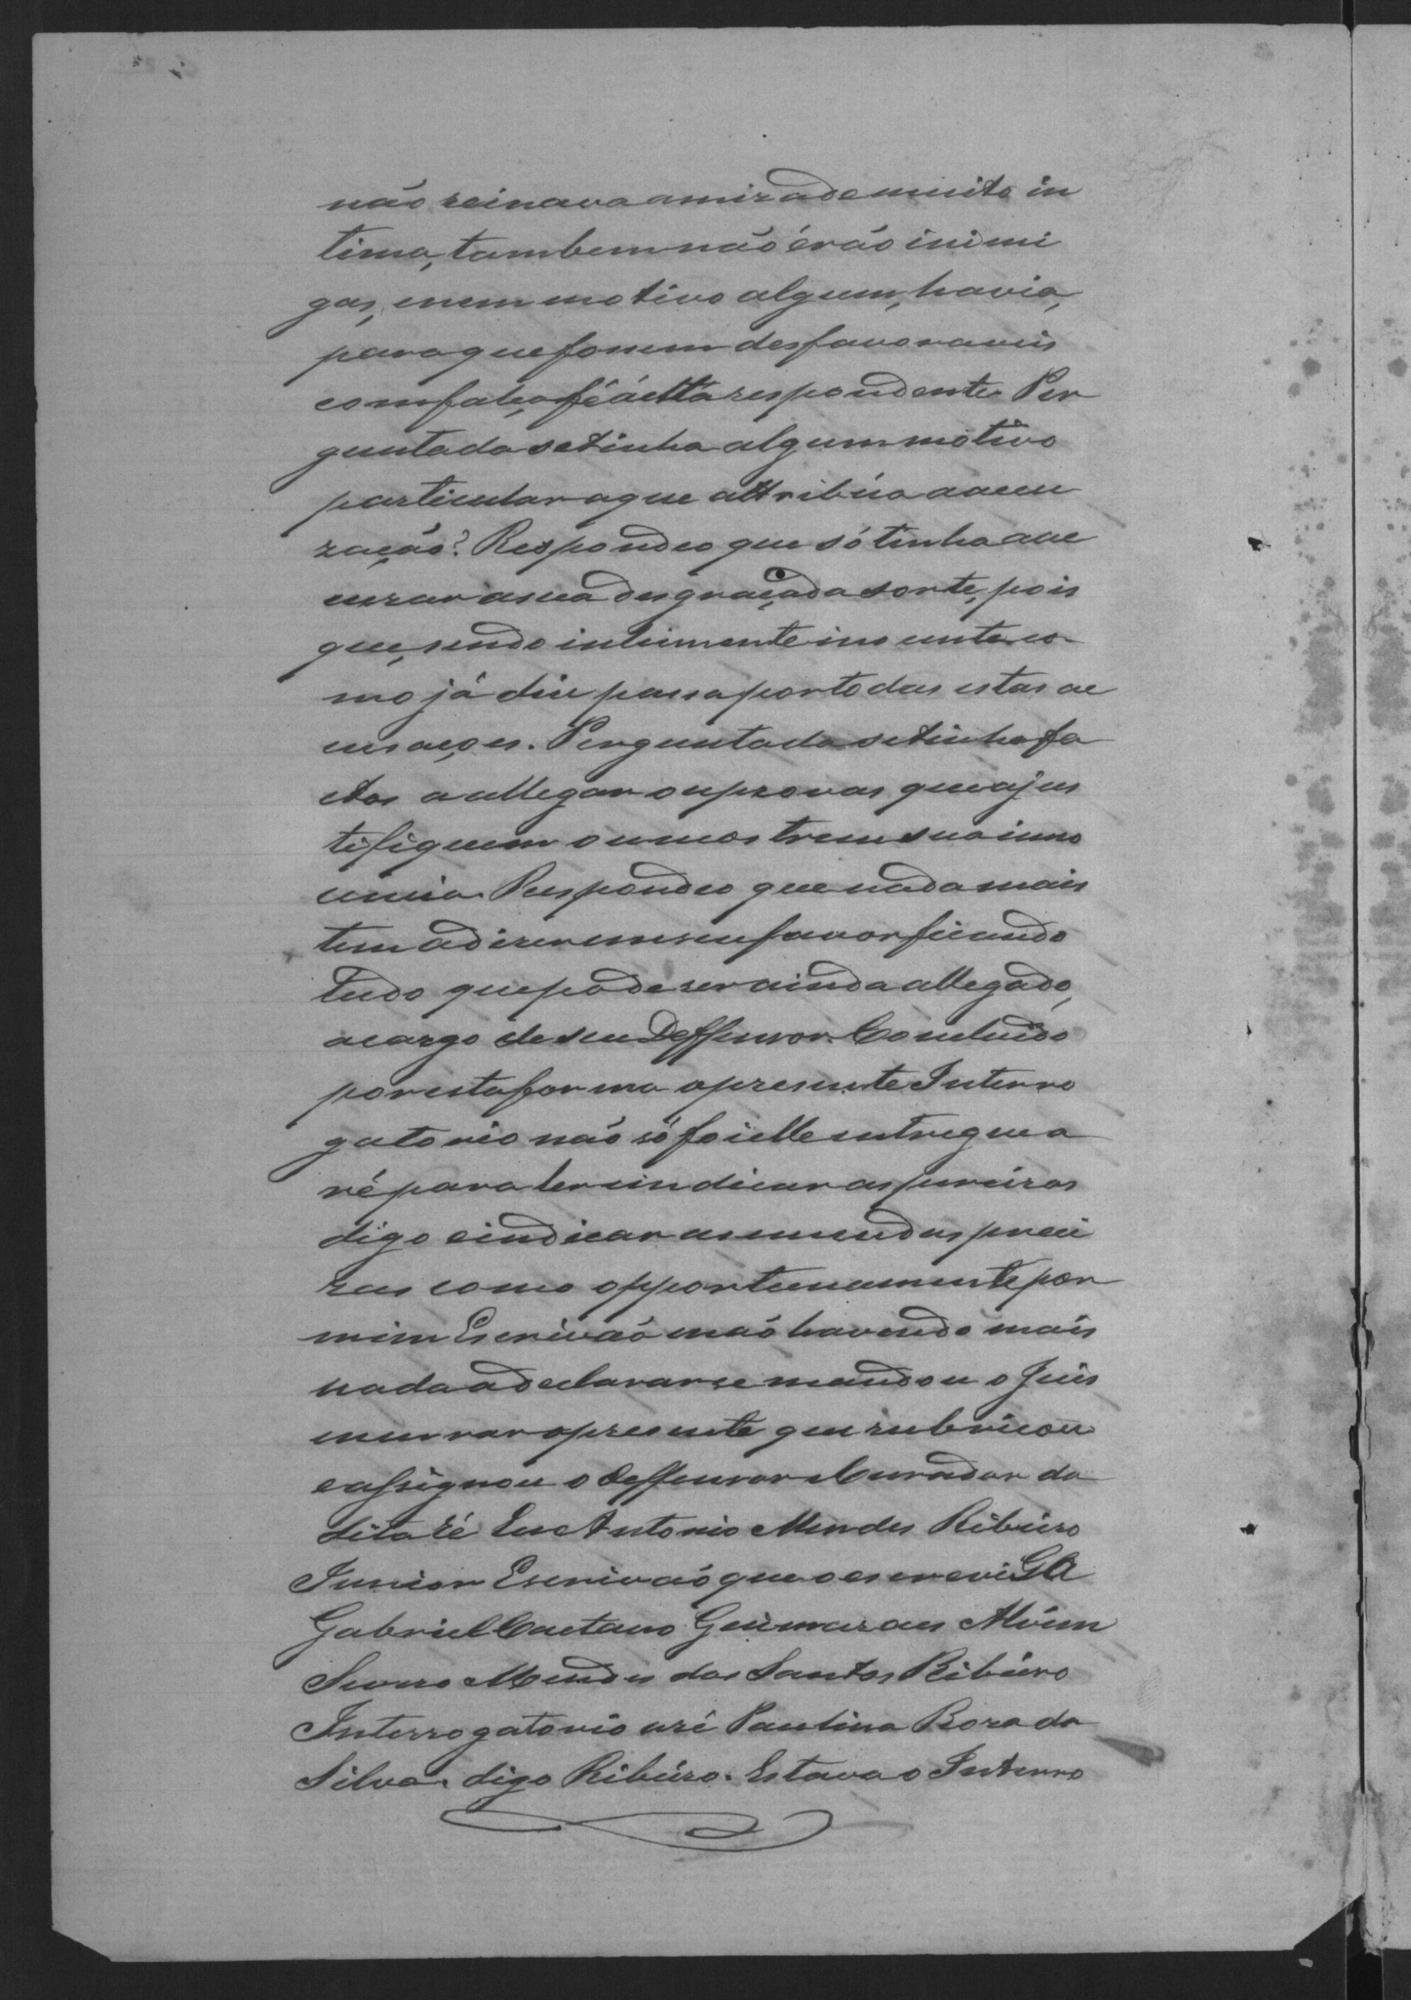 não reinava amizade muito in
tima, tambem não érão inimi
gas, e nem motivo algum, havia,
para que fossem desfavoraveis
com falça fé á ella respondente. Per
guntada se tinha algum motivo
particular a que attribúa a accu
zação? Respondeo que só tinha a ac
cuzar a sua desgraçada sorte, pois
que, sendo inteiramente innocente co
mo já disse passa por todas estas ac
cusações. Perguntada se tinha fa
ctos a allegar ou provas que a jus
tifiquem ou mostrem sua inno
cencia. Respondeo que nada mais
tem a dizer em seu favor ficando
tudo que pode ser ainda allegado,
a cargo de seu Deffensor. Concluido
por esta forma o presente Interro
gatorio não só foi elle entregue a
ré para ler e indicar as pureizas
digo e indicar as emendas preci
zas como opportunamente por
mim Escrivão e não havendo mais
nada a declarar se mandou o Juis
encerrar o presente que rubricou
e assignou o deffensor e Curador da
dita ré Eu Antonio Mendes Ribeiro
Junior Escrivão que o escrevi GA
Gabriel Caetano Guimaraes Alvim
Mendes dos Santos Ribeiro
Interrogatorio a ré Paulina Roza da
Silva. digo Ribeiro. Estava o Interro